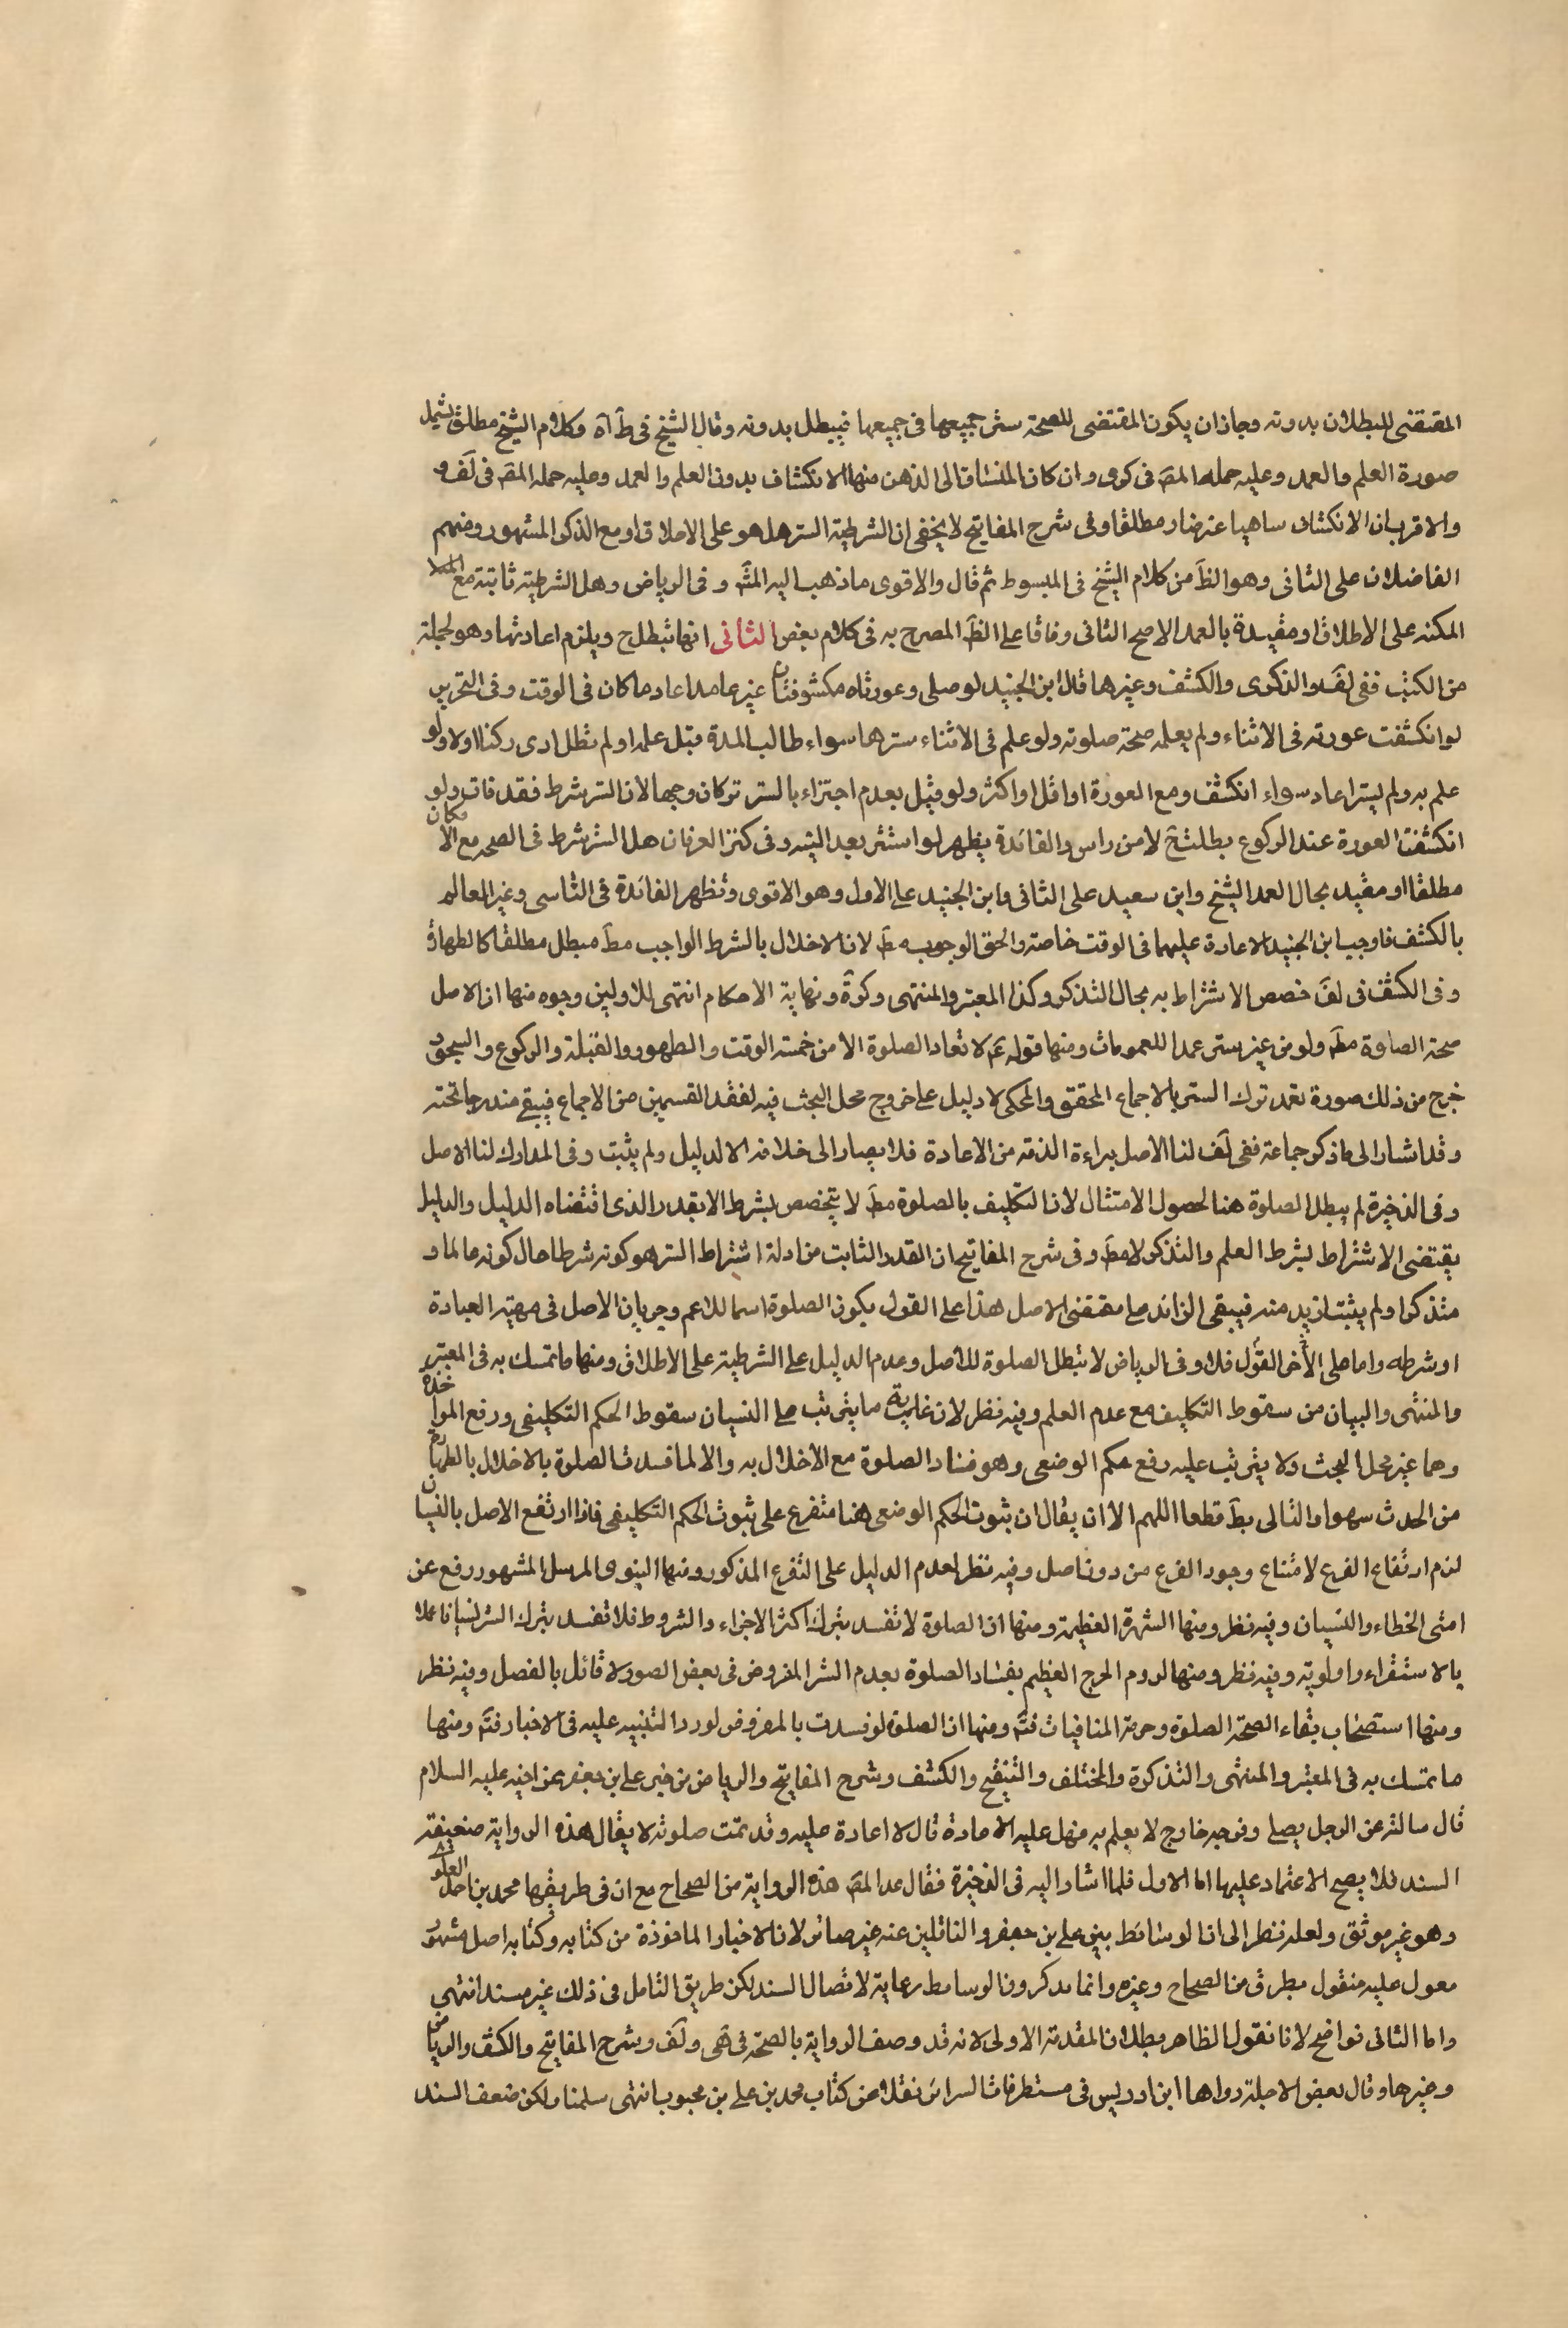 المقتضى للبطلان بدونه وجاز ان يكون المقتضى للصحة ستر جميعها فى جميعها فيبطل بدونه وقال الشيخ فى ط آه وكلام الشيخ مطلق يشمل
صورة العلم والعمد وعليه حمله المص فى كرى وان كان المنساق الى الذهن منها الانكشاف بدون العلم والعمد وعليه حمله المص فى لف و
والاقرب ان الانكشاف ساهيا غير ضار مطلقا وفى شرح المفاتيح لا يخفى ان الشرطية الستر هل هو على الاطلاق او مع الذكر المشهور ومنهم
الفاضلان على الثانى وهو الظ من كلام الشيخ فى المبسوط ثم قال والاقوى ما ذهب اليه المش وفى الرياض وهل الشرطية ثابتة مع
المكنه على الاطلاق او مقيدة بالعمد الاصح الثانى وفاقا على الظ المصرح به فى كلام بعض الثانى انها تبطل ح ويلزم اعادتها وهو لجملة
من الكتب ففى لف والذكرى والكشف وغيرها قال ابن الجنيد لو صلى وعورتاه مكشوفتان غير عامد اعاد ما كان فى الوقت وفى التحرير
لو انكشفت عورته فى الاثناء ولم يعلم صحة صلوته ولو علم فى الاثناء سترها سواء طالب المدة قبل علمه او لم تطل ادى ركنا او لا ولو
علم به ولم يستر اعاد سواء انكشف ومع العورة او اقل او اكثر ولو قيل بعدم اجتزاء بالستر كان وجها لان الستر شرط فقد فات ولو
انكشفت العورة عند الركوع بطلت ح لا من راس والفائدة يظهر لو استتر بعد اليته وفى كنز العرفان هل الستر شرط فى الصحه مع الامكان
مطلقا او مقيد بحال العمد الشيخ وابن سعيد على الثانى وابن الجنيد على الاول وهو الاقوى وتظهر الفائدة فى الناسى وغير العالم
بالكشف فاوجب ابن الجنيد الاعادة عليهما فى الوقت خاصة والحق الوجوب مط لان الاخلال بالشرط الواجب مط مبطل مطلقا كالطهارة
وفى الكشف فى لف خصص الاشتراط به بحال التذكر وكذا المعتبر والمنتهى وكرة ونهاية الاحكام انتهى للاولين وجوه منها ان الاصل
صحة الصلوة مط ولو من غير ستر عمدا للعمومات ومنها قوله ع لا تعاد الصلوة الا من خمسة الوقت والطهور والقبلة والركوع والسجود
خرج من ذلك صورة تعمد ترك الستر بالاجماع المحقق والمحكى لا دليل على خروج محل البحث فيه لفقد القسمين من الاجماع فيبقى مندرجا تحته
وقد اشار الى ما ذكر جماعة ففى لف لنا الاصل براءة الذمه من الاعادة فلا يصار الى خلافه الا لدليل ولم يثبت وفى المدارك لنا الاصل
وفى الذخيرة لم يبطل الصلوة هنا لحصول الامتثال لان التكليف بالصلوة مط لا يتخصص بشرط الا بقدر الذى اقتضاه الدليل والدليل
يقتضى الاشتراط بشرط العلم والتذكر لا مط وفى شرح المفاتيح ان القدر الثابت من ادلة اشتراط الستر هو كونه شرطا حال كونه عالما و
متذكرا ولم يثبت ازيد منه فيبقى الزائد على مقتضى الاصل هذا على القول بكون الصلوة اسما للاعم وجريان الاصل فى مهية العبادة
او شرطه واما على الأخر القول فلا وفى الرياض لا تبطل الصلوة للاصل وعدم الدليل على الشرطية على الاطلاق ومنها ما تمسك به فى المعتبر
والمنتهى والبيان من سقوط التكليف مع عدم العلم وفيه نظر لان غاية ما يترتب على النسيان سقوط الحكم التكليفى ورفع المواخذة
وهما غير محل البحث ولا يترتب عليه رفع حكم الوضعى وهو فساد الصلوة مع الاخلال به والا لما فسدت الصلوة بالاخلال بالطهارة
من الحدث سهوا والتالى بط قطعا اللهم الا ان يقال ان ثبوت الحكم الوضعى هنا متفرع على ثبوت الحكم التكليفى فاذا ارتفع الاصل بالنسيان
لزم ارتفاع الفرع لامتناع وجود الفرع من دون اصل وفيه نظر لعدم الدليل على التفرع المذكور ومنها النبوى المرسل المشهور رفع عن
امتى الخطاء والنسيان وفيه نظر ومنها الشهرة العظيمة ومنها ان الصلوة لا تفسد بترك اكثر الاجزاء والشروط فلا تفسد بترك الستر نسيانا عملا
بالاستقراء واولويته وفيه نظر ومنها لزوم الحرج العظيم بفساد الصلوة بعدم الستر المفروض فى بعض الصور ولا قائل بالفصل وفيه نظر
ومنها استصحاب بقاء الصحة الصلوة وحرمة المنافيات فتم ومنها ان الصلوة لو فسدت بالمفروض لورد التنبيه عليه فى الاخبار فتم ومنها
ما تمسك به فى المعتبر والمنتهى والتذكرة والمختلف والتنقيح والكشف وشرح المفاتيح والرياض من خبر على بن جعفر عن اخيه عليه السلام
قال سالته عن الرجل يصلى وفرجه خارج لا يعلم به هل عليه الاعادة قال لا اعادة عليه وقد تمت صلوته لا يقال هذه الرواية ضعيفة
السند فلا يصح الاعتماد عليها اما الاول فلما اشار اليه فى الذخيرة فقال عد المص هذه الرواية من الصحاح مع ان فى طريقها محمد بن احمد العلوى
وهو غير موثق ولعله نظر الى ان الوسائط بين على بن جعفر و الناقلين عنه غير ضائر لان الاخبار الماخوذة من كتابه وكتابه اصل مشهور
معول عليه منقول بطرق من الصحاح وغيره وانما يذكرون الوسائط رعاية لاتصال السند لكن طريق التامل فى ذلك غير مسند انتهى
واما الثانى فواضح لانا نقول الظاهر بطلان المقدمة الاولى لانه قد وصف الرواية بالصحة فى هى ولف وشرح المفاتيح والكشف والرياض
وغيرها وقال بعض الاجلة رواها ابن ادريس فى مستطرفات السرائر نقلا عن كتاب محمد بن على بن محبوب انتهى سلمنا ولكن ضعف السند